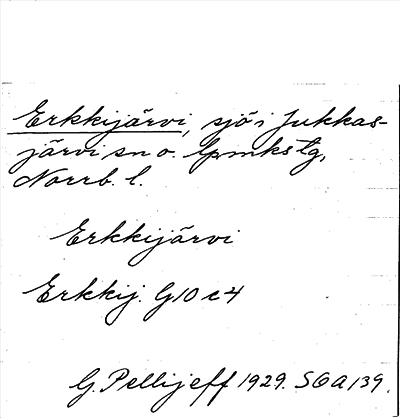 Erkkijärvi, sjö i Jukkas-
järvi sn o. lpmkstg,
Norrb. l.
Erkkijärvi
Erkkij. G10 c4
G. Pellijeff 1929. SOA 139.